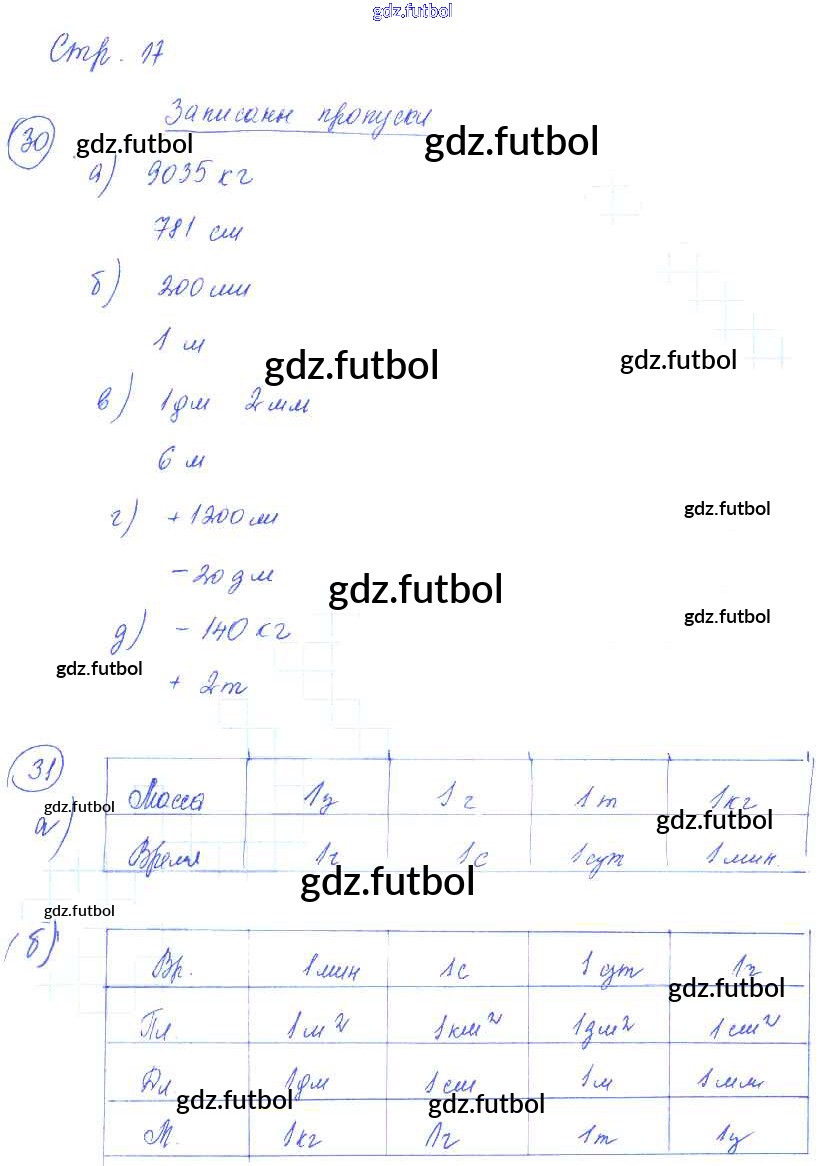 gdz.futbol
Стр. 17
Записаны пропуски
30 gdz.futbol gdz.futbol
а) 9035 кг
781 см
б) 200 мм
1 м
gdz.futbol gdz.futbol
в) 1дм 2мм
6 м
г) + 1200 м gdz.futbol
- 20 дм
gdz.futbol
д) - 140 кг gdz.futbol
gdz.futbol
+ 2т
31
Масса 1ц 1г 1т 1кг
gdz.futbol
а) gdz.futbol
Время 1ч 1с 1сут 1мин.
gdz.futbol
gdz.futbol
б)
Вр. 1мин 1с 1сут 1ч
gdz.futbol
Пл. 1м² 1км² 1дм² 1см²
Дл 1дм 1см 1м 1мм
gdz.futbol gdz.futbol
М. 1кг 1г 1т 1ц